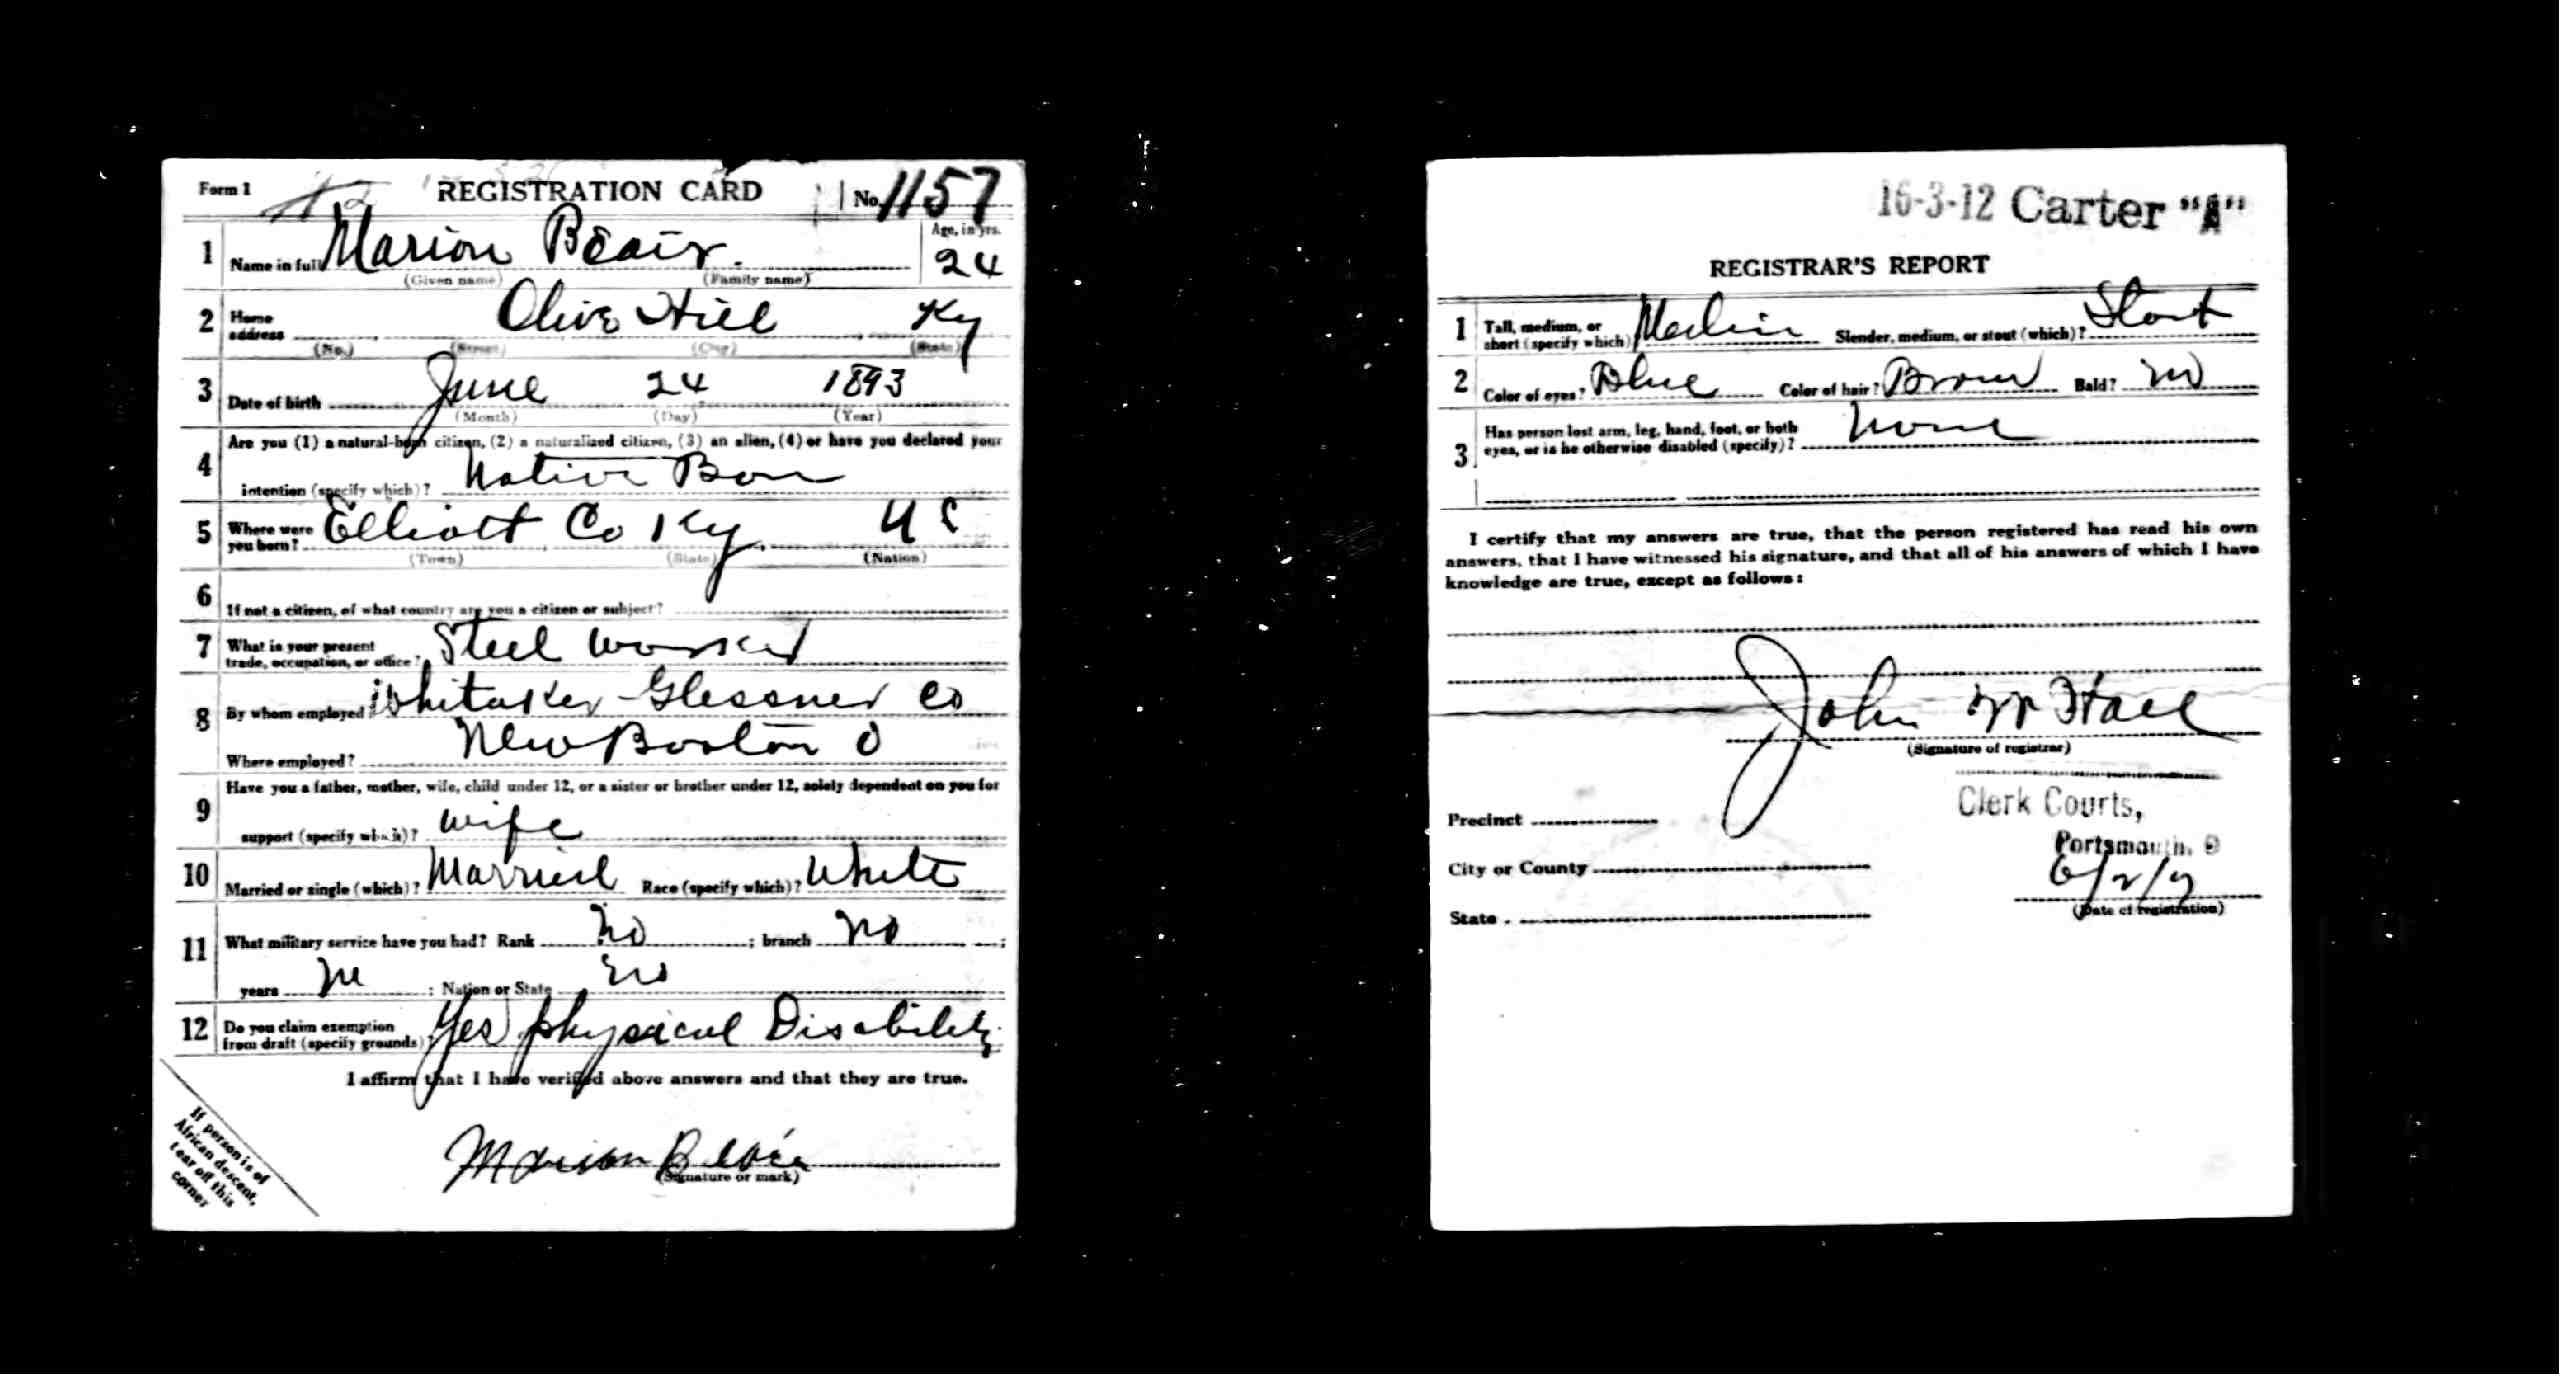 Form 1 REGISTRATION CARD No. 1157
1 Name in full Marion Blair. Age, in yrs. 24
(Given name) (Family name)
2 Home address Olive Hill Ky
(No.) (Street) (City) (State)
3 Date of birth June 24 1893
(Month) (Day) (Year)
4 Are you (1) a natural-born citizen, (2) a naturalized citizen, (3) an alien, (4) or have you declared your
intention (specify which)? Native Born
5 Where were you born? Elliott Co Ky. U S
(Town) (State) (Nation)
6 If not a citizen, of what country are you a citizen or subject?
7 What is your present trade, occupation, or office? Steel worker
8 By whom employed Whitaker-Glessner Co
Where employed? New Boston O
9 Have you a father, mother, wife, child under 12, or a sister or brother under 12, solely dependent on you for
support (specify which)? wife
10 Married or single (which)? Married Race (specify which)? White
11 What military service have you had? Rank no ; branch no ;
years no ; Nation or State no
12 Do you claim exemption from draft (specify grounds)? Yes physical Disability
I affirm that I have verified above answers and that they are true.
Marion Blair
(Signature or mark)
If person is of
African descent,
tear off this
corner
16-3-12 Carter "A"
REGISTRAR'S REPORT
1 Tall, medium, or short (specify which)? Medium Slender, medium, or stout (which)? Stout
2 Color of eyes? Blue Color of hair? Brown Bald? no
3 Has person lost arm, leg, hand, foot, or both eyes, or is he otherwise disabled (specify)? None
I certify that my answers are true, that the person registered has read his own
answers, that I have witnessed his signature, and that all of his answers of which I have
knowledge are true, except as follows:
John W Hall
(Signature of registrar)
Clerk Courts,
Precinct
Portsmouth, O
City or County
6/2/17
State
(Date of registration)